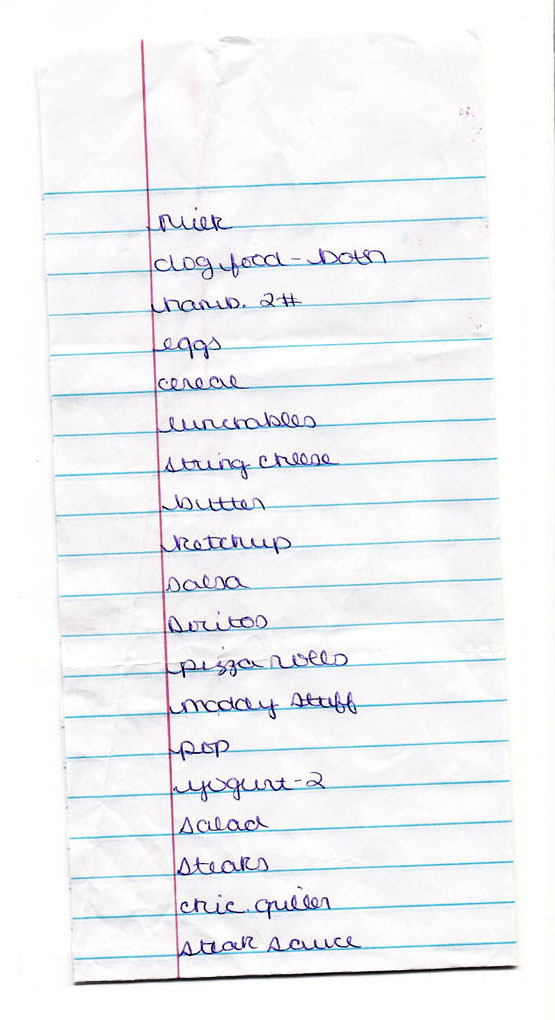 milk
dog food - both
hamb. 2#
eggs
cereal
lunchables
string cheese
butter
ketchup
salsa
Doritos
pizza rolls
mdday stuff
pop
yogurt-2
salad
steaks
chic. griller
steak sauce